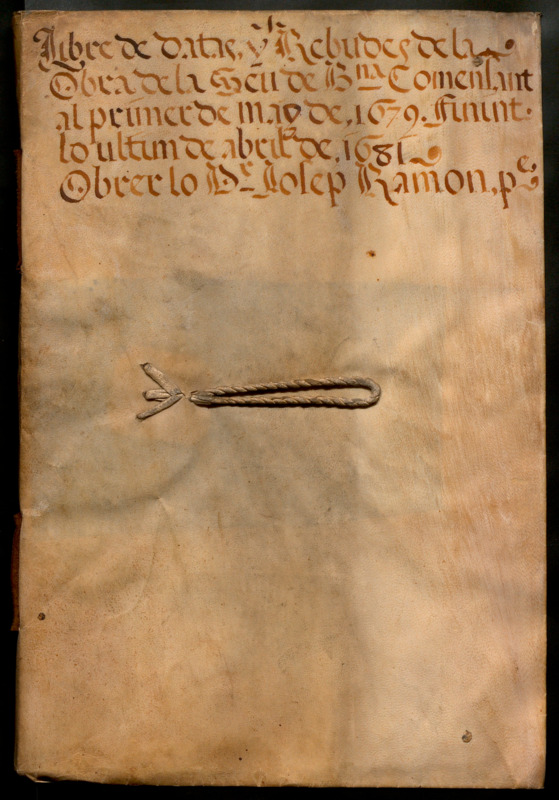 Llibre de datas, y Rebudes de la
Obra de la Seu de Bna Comensant
al primer de may de 1679. finint
lo ultim de abril de 1681
Obrer lo Dr. Josep Ramon, pe